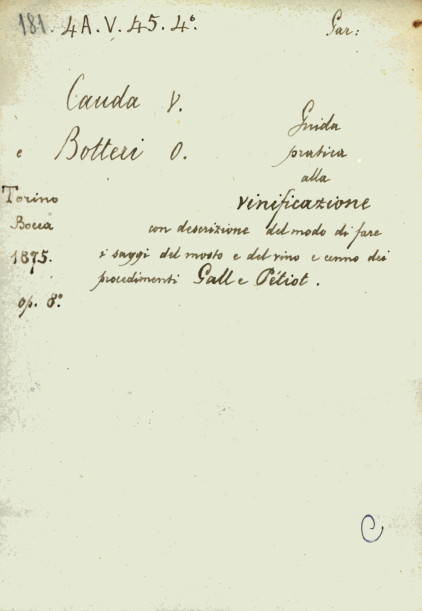 181. 4 A. V. 45. 4º. Gar:
Cauda V.
e Botteri O.
Guida
pratica
alla
vinificazione
con descrizione del modo di fare
i saggi del mosto e del vino e cenno dei
procedimenti Gall e Pétiot.
Torino
Bocca
1875.
op. 8º.
C